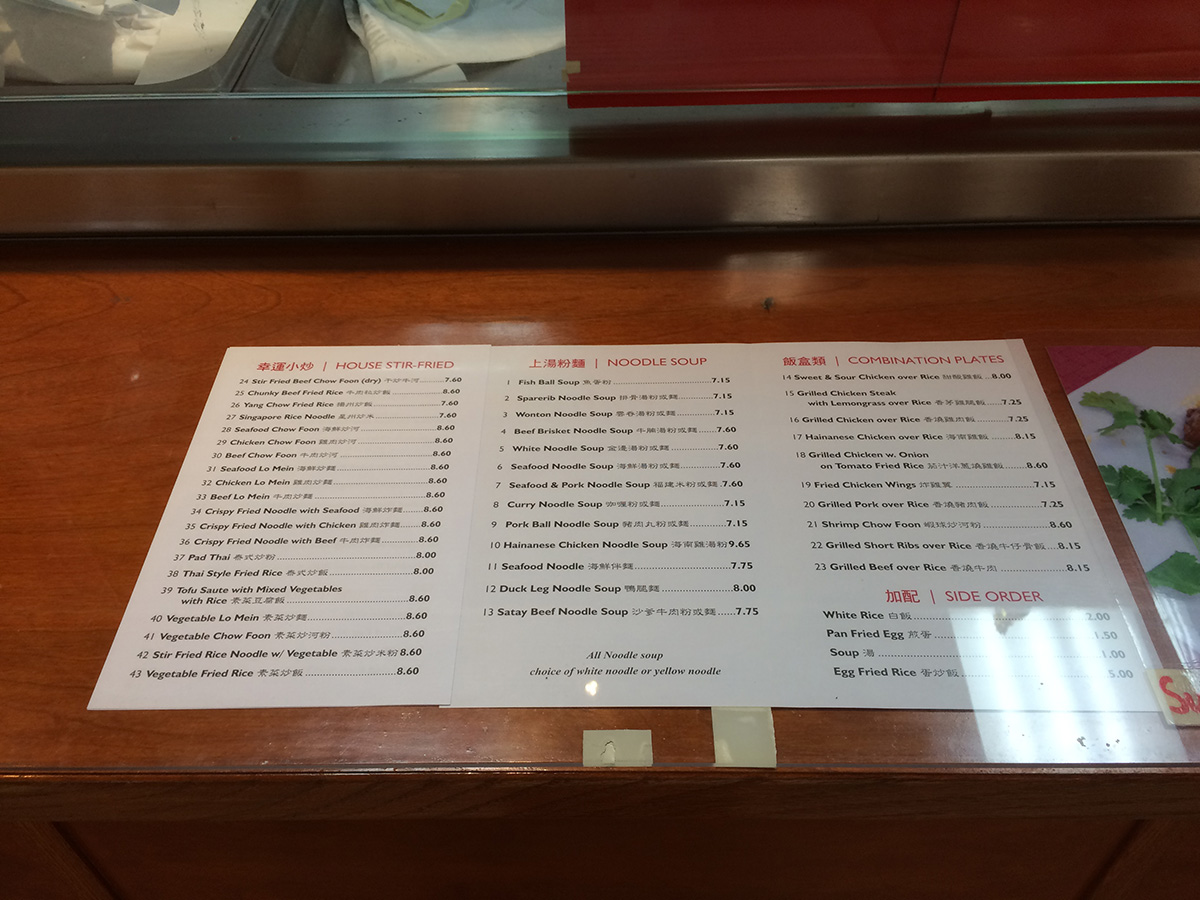 幸運小炒 | HOUSE STIR-FRIED
24 Stir Fried Beef Chow Foon (dry) 干炒牛河.........7.60
25 Chunky Beef Fried Rice 牛肉粒炒飯.........8.60
26 Yang Chow Fried Rice 揚州炒飯.........7.60
27 Singapore Rice Noodle 星州炒米.........7.60
28 Seafood Chow Foon 海鮮炒河.........8.60
29 Chicken Chow Foon 雞肉炒河.........8.60
30 Beef Chow Foon 牛肉炒河.........8.60
31 Seafood Lo Mein 海鮮炒麵.........8.60
32 Chicken Lo Mein 雞肉炒麵.........8.60
33 Beef Lo Mein 牛肉炒麵.........8.60
34 Crispy Fried Noodle with Seafood 海鮮炸麵.....8.60
35 Crispy Fried Noodle with Chicken 雞肉炸麵.....8.60
36 Crispy Fried Noodle with Beef 牛肉炸麵.........8.60
37 Pad Thai 泰式炒粉.........8.00
38 Thai Style Fried Rice 泰式炒飯.........8.00
39 Tofu Saute with Mixed Vegetables
with Rice 素菜豆腐飯.........8.60
40 Vegetable Lo Mein 素菜炒麵.........8.60
41 Vegetable Chow Foon 素菜炒河粉.........8.60
42 Stir Fried Rice Noodle w/ Vegetable 素菜炒米粉 8.60
43 Vegetable Fried Rice 素菜炒飯.........8.60
上湯粉麵 | NOODLE SOUP
1 Fish Ball Soup 魚蛋粉.........7.15
2 Sparerib Noodle Soup 排骨湯粉或麵.........7.15
3 Wonton Noodle Soup 雲吞湯粉或麵.........7.15
4 Beef Brisket Noodle Soup 牛腩湯粉或麵.....7.60
5 White Noodle Soup 金邊湯粉或麵.........7.60
6 Seafood Noodle Soup 海鮮湯粉或麵.........7.60
7 Seafood & Pork Noodle Soup 福建米粉或麵 .7.60
8 Curry Noodle Soup 咖喱粉或麵.........7.15
9 Pork Ball Noodle Soup 豬肉丸粉或麵.........7.15
10 Hainanese Chicken Noodle Soup 海南雞湯粉 9.65
11 Seafood Noodle 海鮮伴麵.........7.75
12 Duck Leg Noodle Soup 鴨腿麵.........8.00
13 Satay Beef Noodle Soup 沙爹牛肉粉或麵.....7.75
All Noodle soup
choice of white noodle or yellow noodle
飯盒類 | COMBINATION PLATES
14 Sweet & Sour Chicken over Rice 甜酸雞飯...8.00
15 Grilled Chicken Steak
with Lemongrass over Rice 香茅雞扒飯.....7.25
16 Grilled Chicken over Rice 香燒雞肉飯.........7.25
17 Hainanese Chicken over Rice 海南雞飯.........8.15
18 Grilled Chicken w. Onion
on Tomato Fried Rice 茄汁洋蔥燒雞飯.......8.60
19 Fried Chicken Wings 炸雞翼.........7.15
20 Grilled Pork over Rice 香燒豬肉飯.........7.25
21 Shrimp Chow Foon 蝦球炒河粉.........8.60
22 Grilled Short Ribs over Rice 香燒牛仔骨飯...8.15
23 Grilled Beef over Rice 香燒牛肉.........8.15
加配 | SIDE ORDER
White Rice 白飯.........2.00
Pan Fried Egg 煎蛋.........1.50
Soup 湯.........1.00
Egg Fried Rice 蛋炒飯.........5.00